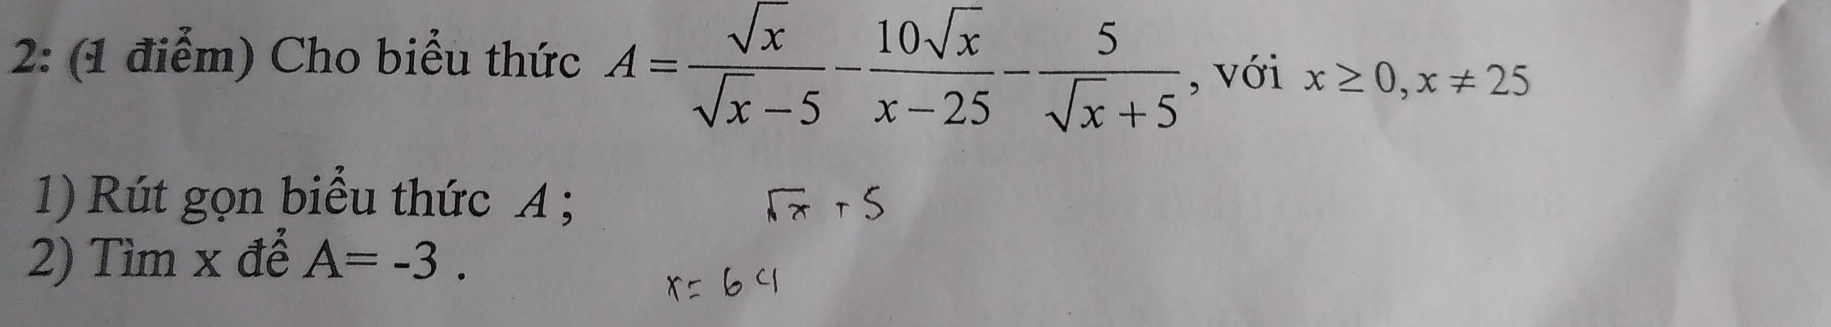 2: (1 điểm) Cho biểu thức A = √x/(√x − 5) − 10√x/(x − 25) − 5/(√x + 5), với x ≥ 0, x ≠ 25
1) Rút gọn biểu thức A ; √x + 5
2) Tìm x để A= -3 .
x = 64